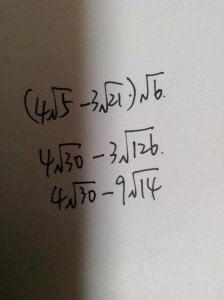 (4√5 - 3√21)√6.
4√30 - 3√126.
4√30 - 9√14